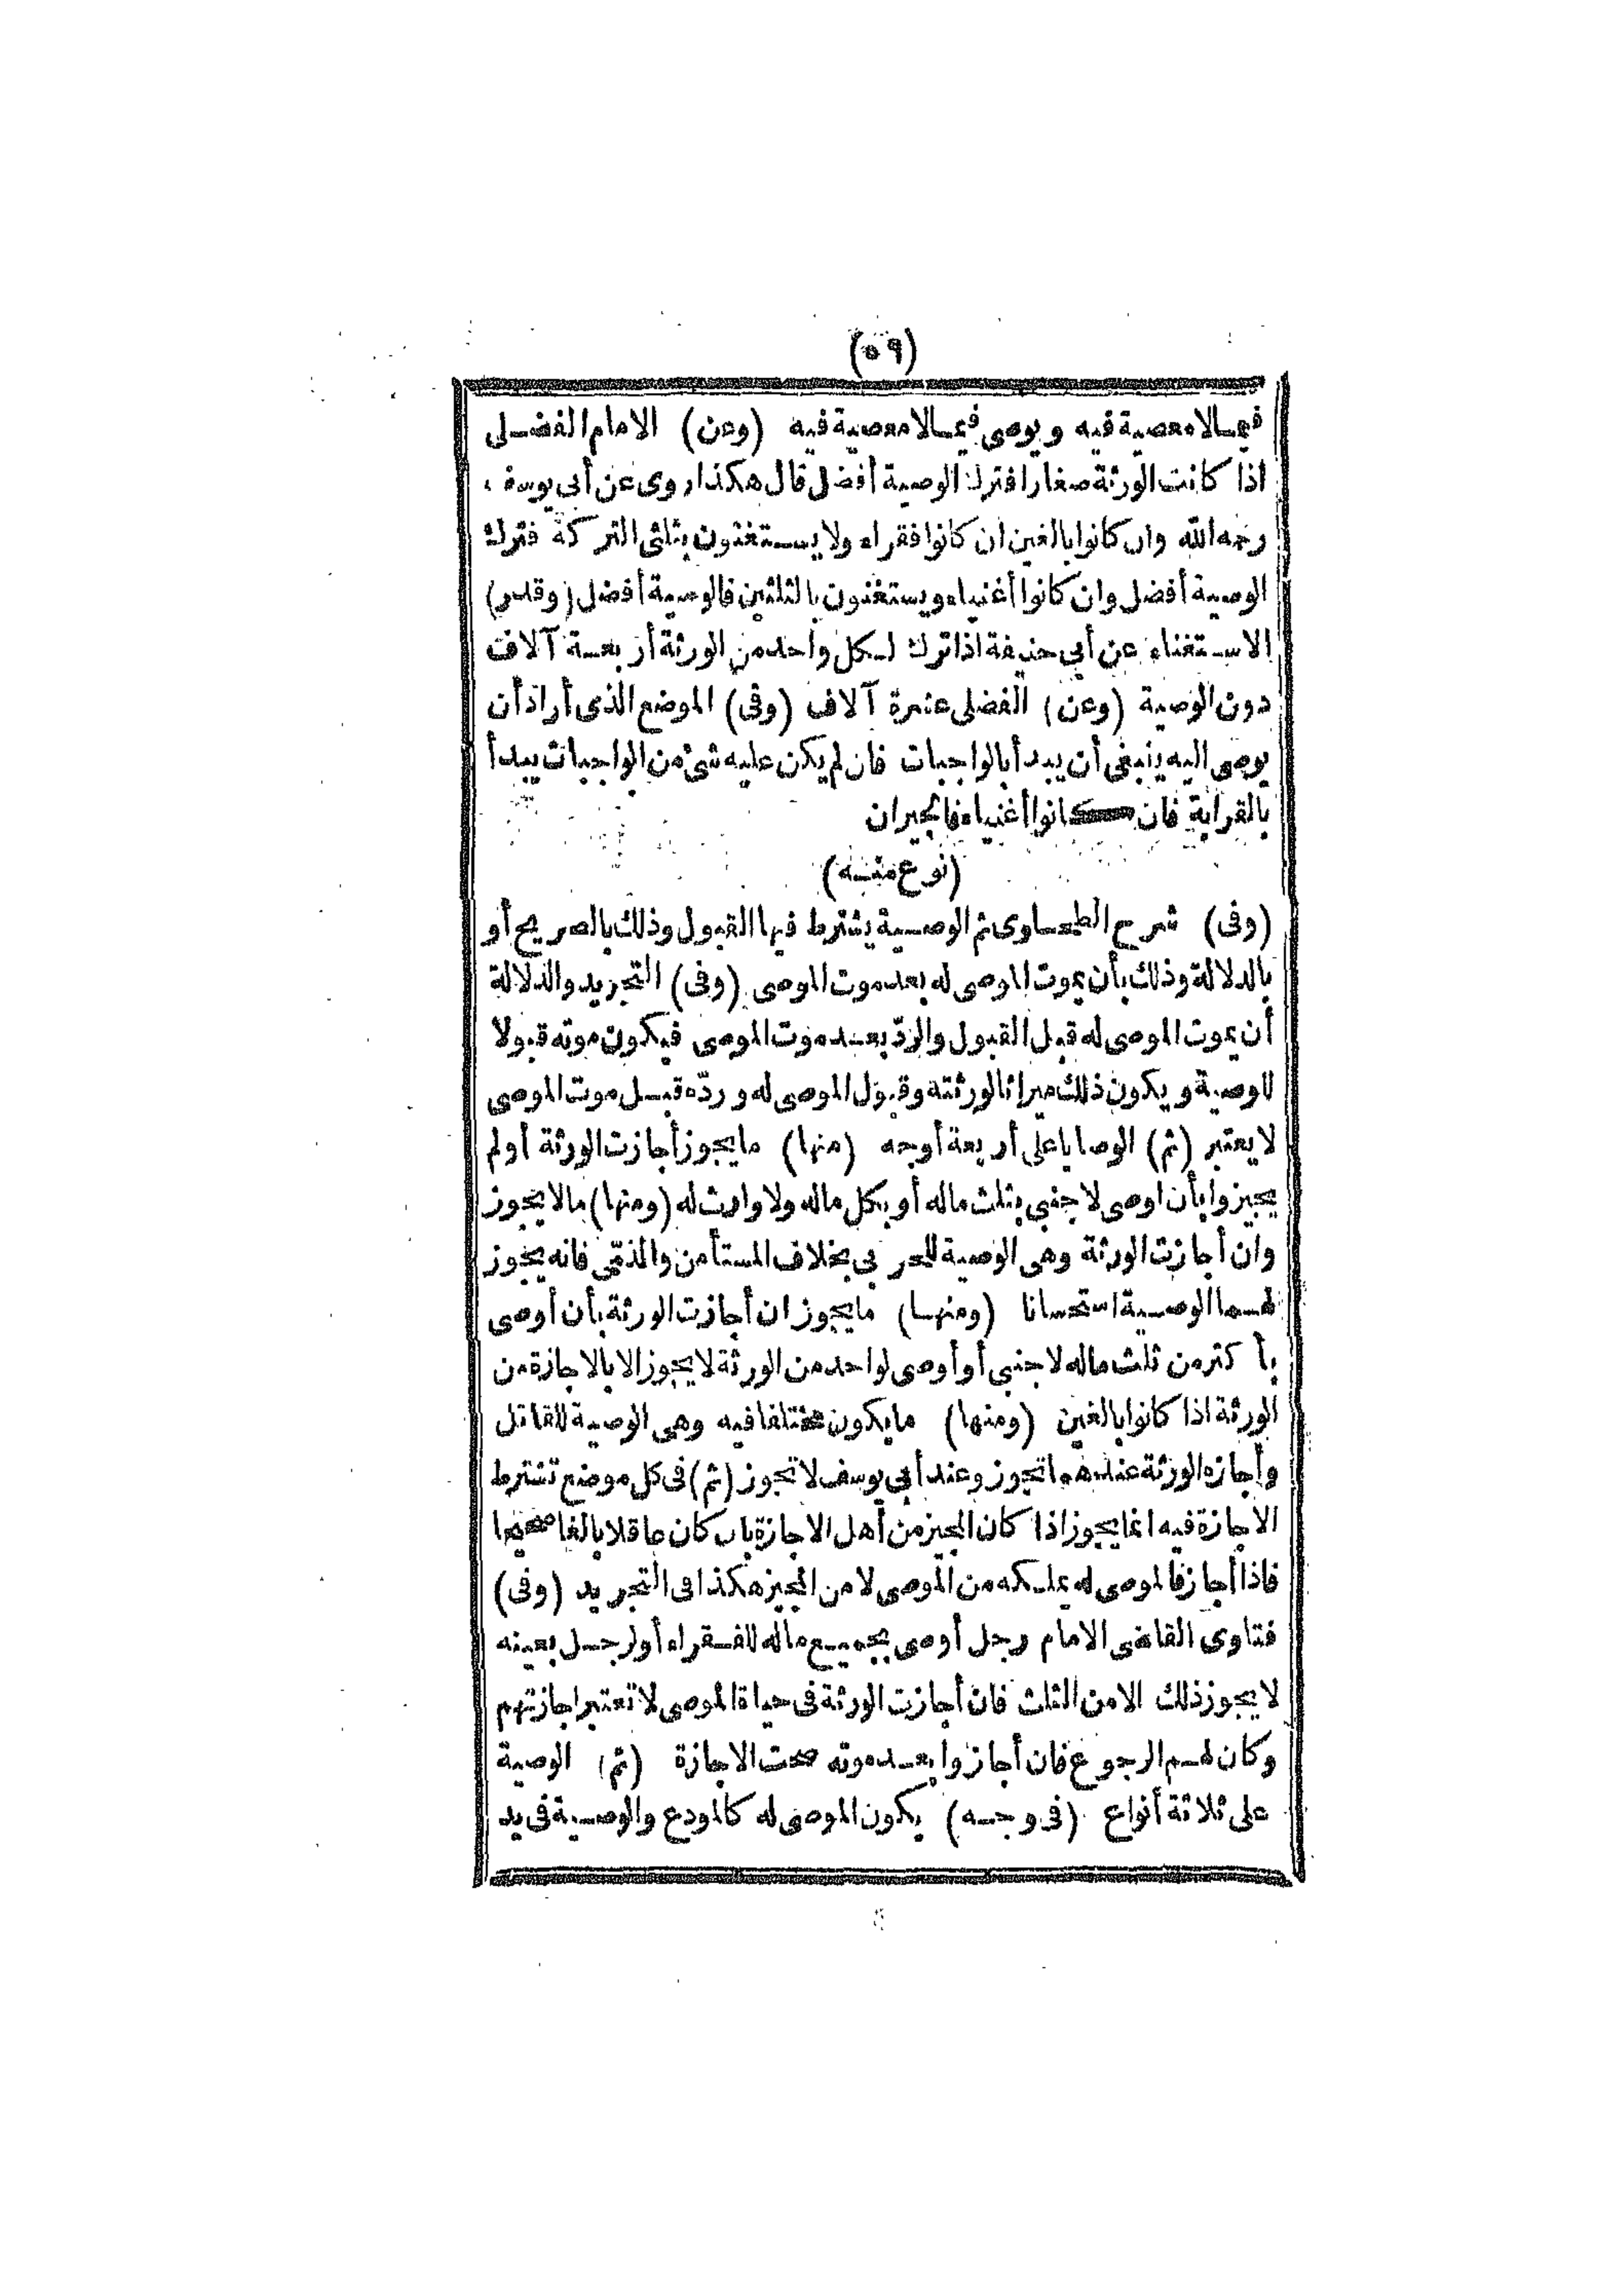 (٥٩)
فيما لا معصية فيه ويوصى فيما لا معصية فيه (وعن) الامام الفضلى
اذا كانت الورثة صغارا فترك الوصية أفضل قال هكذا روى عن أبى يوسف
رحمه الله وان كانوا بالغين ان كانوا فقراء ولا يستغنون بثلثى التركة فترك
الوصية أفضل وان كانوا أغنياء ويستغنون بالثلثين فالوصية أفضل (وقدر)
الاستغناء عن أبى حنيفة اذا ترك لكل واحد من الورثة أربعة آلاف
دون الوصية (وعن) الفضلى عشرة آلاف (وفى) الموضع الذى أراد أن
يوصى اليه ينبغى أن يبدأ بالواجبات فان لم يكن عليه شئ من الواجبات يبدأ
بالقرابة فان كانوا أغنياء فالجيران
(نوع منه)
(وفى) شرح الطحاوى ثم الوصية يشترط فيها القبول وذلك بالصريح أو
بالدلالة وذلك بأن يموت الموصى له بعد موت الموصى (وفى) التجريد والدلالة
أن يموت الموصى له قبل القبول والردّ بعد موت الموصى فيكون موته قبولا
للوصية ويكون ذلك ميراثا لورثته وقبول الموصى له وردّه قبل موت الموصى
لا يعتبر (ثم) الوصايا على أربعة أوجه (منها) ما يجوز أجازت الورثة أو لم
يجيزوا بأن اوصى لاجنبى بثلث ماله أو بكل ماله ولا وارث له (ومنها) ما لا يجوز
وان أجازت الورثة وهى الوصية للحربى بخلاف المستأمن والذمّى فانه يجوز
لهما الوصية استحسانا (ومنها) ما يجوز ان أجازت الورثة بأن أوصى
بأكثر من ثلث ماله لاجنبى أو أوصى لواحد من الورثة لا يجوز الا بالاجازة من
الورثة اذا كانوا بالغين (ومنها) ما يكون مختلفا فيه وهى الوصية للقاتل
وأجازه الورثة عندهما تجوز وعند أبى يوسف لا تجوز (ثم) فى كل موضع تشترط
الاجازة فيه انما يجوز اذا كان المجيز من أهل الاجازة بان كان عاقلا بالغا صحيحا
فاذا أجاز فالموصى له يملكه من الموصى لا من المجيز هكذا فى التجريد (وفى)
فتاوى القاضى الامام رجل أوصى بجميع ماله للفقراء أو لرجل بعينه
لا يجوز ذلك الا من الثلث فان أجازت الورثة فى حياة الموصى لا تعتبر اجازتهم
وكان لهم الرجوع فان أجازوا بعد موته صحت الاجازة (ثم) الوصية
على ثلاثة أنواع (فى وجه) يكون الموصى له كالمودع والوصية فى يد